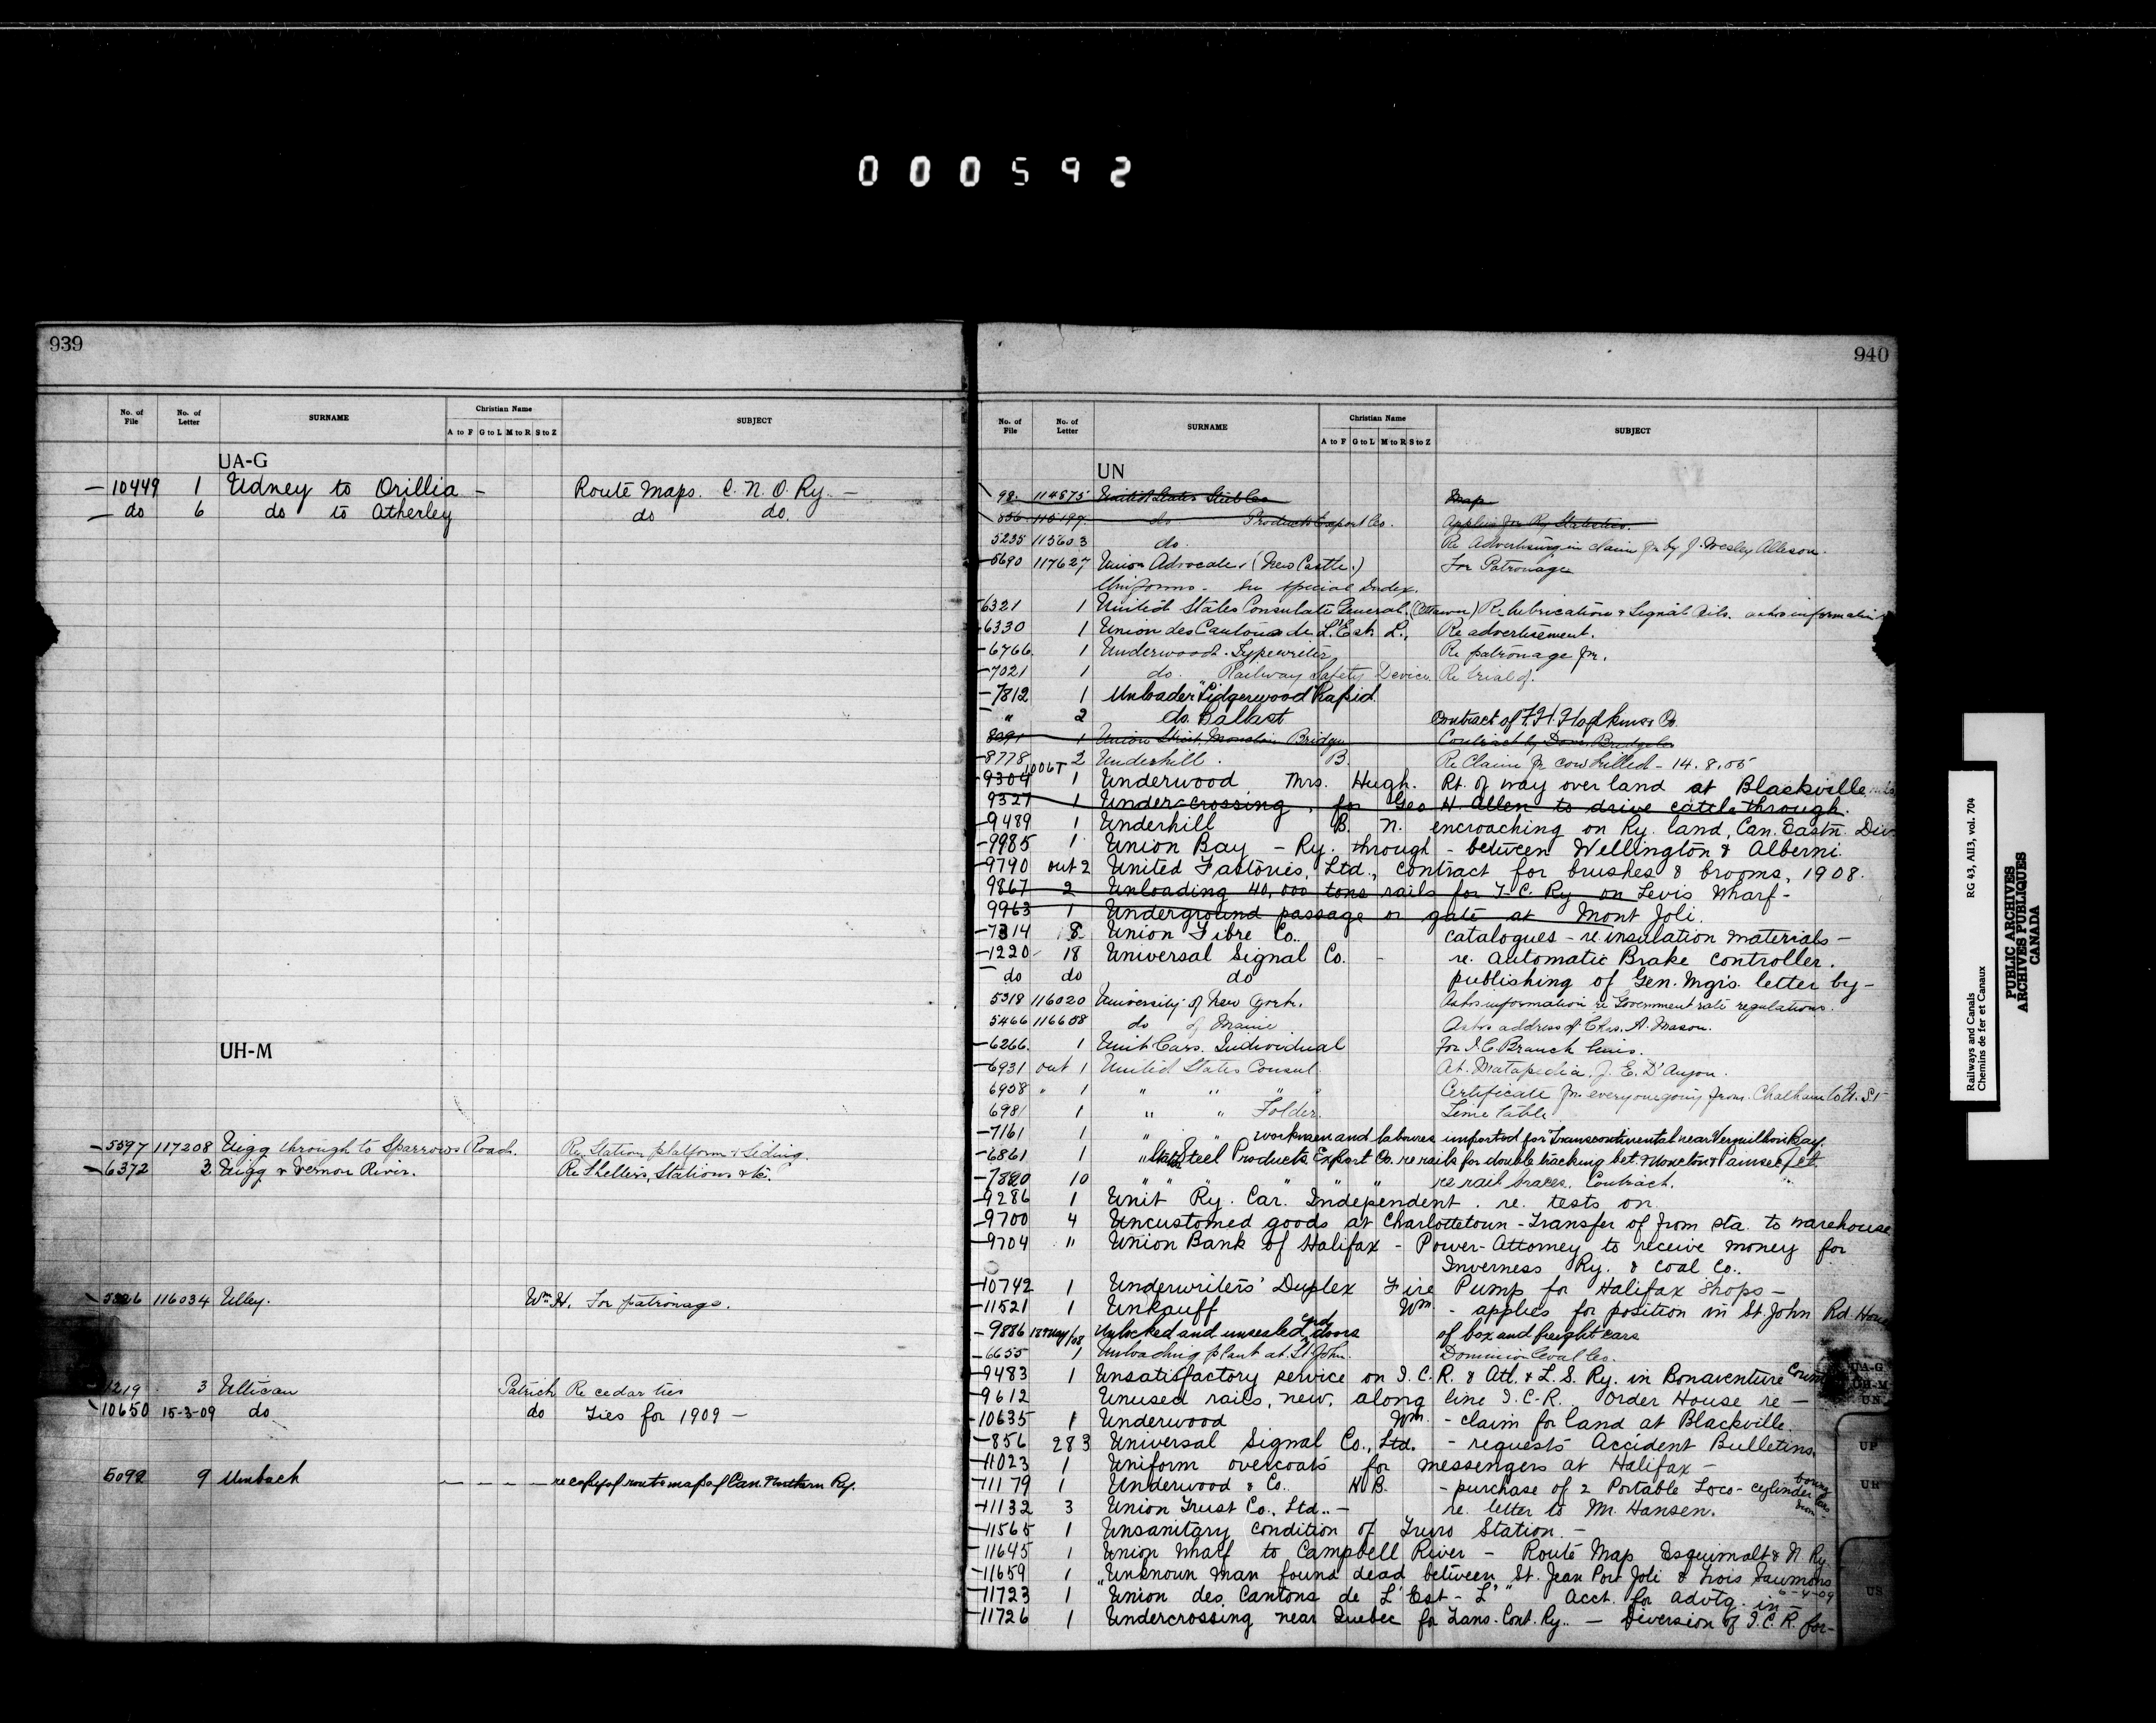 000592
939
No. of File No. of Letter SURNAME Christian Name A to F G to L M to R S to Z SUBJECT
UA-G
— 10449 1 Udney to Orillia — Route Maps. C. N. O. Ry. —
— do 6 do to Atherley do do.
UH-M
— 5597 117208 Uigg through to Sparrows Road. Re Station platform & Siding.
— 6372 3 Uigg & Vernon River. Re Shelters, Stations &c.
116034 Ulley. Wm H. For patronage.
1219 3 Ullican Patrick Re cedar ties
10650 15-3-09 do do Ties for 1909 —
5092 9 Umbach — — — — re copy of route map of Can. Northern Ry.
940
No. of File No. of Letter SURNAME Christian Name A to F G to L M to R S to Z SUBJECT
UN
98 114875 United States Map
856 115199 do Products Export Co. Applies for Ry Statistics.
5235 115603 do. Re Advertising in claim for by J. Wesley Allison.
— 5690 117627 Union Advocate (New Castle.) For Patronage
Uniforms - See special Index.
— 6321 1 United States Consulate General. (Ottawa) Re lubrication & Signal Oils. asks information
— 6330 1 Union des Cantons de L'Est L., Re advertisement.
— 6766. 1 Underwood Typewriter Re patronage for.
— 7021 1 do. Railway Safety Device Re trial of.
— 7812 1 Unloader "Lidgerwood" Rapid.
— " 2 do. Ballast Contract of F. H. Hopkins & Co.
8091 1 Union Street, Moncton Bridge Contract by Dom. Bridge Co
— 8778 2 Underhill. B. Re Claim for cow killed - 14.8.05
— 9304 1 Underwood Mrs. Hugh. Rt. of way over land at Blackville
9327 1 Under-crossing, for Geo H. Allen to drive cattle through.
— 9489 1 Underhill B. N. encroaching on Ry. land, Can. Eastn. Div.
— 9985 1 Union Bay — Ry. through - between Wellington & Alberni.
— 9790 out 2 United Factories, Ltd., contract for brushes & brooms, 1908.
9867 2 Unloading 40,000 tons rails for I-C. Ry on Levis Wharf -
9963 1 Underground passage or gate at Mont Joli.
— 7314 8 Union Fibre Co. catalogues — re insulation materials —
— 1220 18 Universal Signal Co. - re. Automatic Brake controller.
— do do do publishing of Gen. Mgr's. letter by —
5318 116020 University of New York. Asks information re Government rate regulations.
5466 116608 do of Maine Asks address of Chas. A. Mason.
— 6266. 1 Unit Cars. Individual For I.C Branch lines.
— 6931 out 1 United States Consul At. Matapedia. J. E. D'Anjou.
6958 " 1 " " " Certificate for everyone going from Chatham to U. S.
6981 1 " " Folder. Time table
— 7161 1 " " workmen and labourers imported for Transcontinental near Vermillion Bay.
— 6861 1 " States Steel Products Export Co. re rails for double tracking bet. Moncton & Painsec Jct.
— 7820 10 " " " " " re rail braces. Contract.
— 9286 1 Unit Ry. Car. Independent. re. tests on
— 9700 4 Uncustomed goods at Charlottetown - Transfer of from sta. to warehouse
— 9704 " Union Bank of Halifax - Power-Attorney to receive money for
Inverness Ry. & Coal Co..
— 10742 1 Underwriters' Duplex Fire Pump for Halifax Shops —
— 11521 1 Unkauff Wm - applies for position in St John Rd. House
— 9886 18 May/08 Unlocked and unsealed end doors of box and freight cars
— 6655 1 Unloading plant at St John. Dominion Coal Co.
— 9483 1 Unsatisfactory service on I. C. R. & Atl. & L. S. Ry. in Bonaventure County
— 9612 Unused rails, new, along line I.C.R. Order House re —
— 10635 1 Underwood Wm. - claim for land at Blackville
— 856 283 Universal Signal Co., Ltd. - requests Accident Bulletins.
— 11023 1 Uniform overcoats for messengers at Halifax —
— 11179 1 Underwood & Co. H. B. - purchase of 2 Portable Loco- cylinder boring
— 11132 3 Union Trust Co. Ltd.. — re. letter to Mr. Hansen.
— 11565 1 Unsanitary condition of Truro Station. —
— 11645 1 Union Wharf to Campbell River — Route Map Esquimalt & N Ry
— 11659 1 Unknown man found dead between St. Jean Port Joli & Trois Saumons
6-4-09
— 11723 1 "Union des Cantons de L'Est - L'" Acct. for advtg. in —
— 11726 1 Undercrossing near Quebec for Trans-Cont. Ry.. — Diversion of I.C.R. for —
UA-G
UH-M
UN
UP
UR
US
Railways and Canals RG 43, AII3, vol. 704
Chemins de fer et Canaux
PUBLIC ARCHIVES
ARCHIVES PUBLIQUES
CANADA